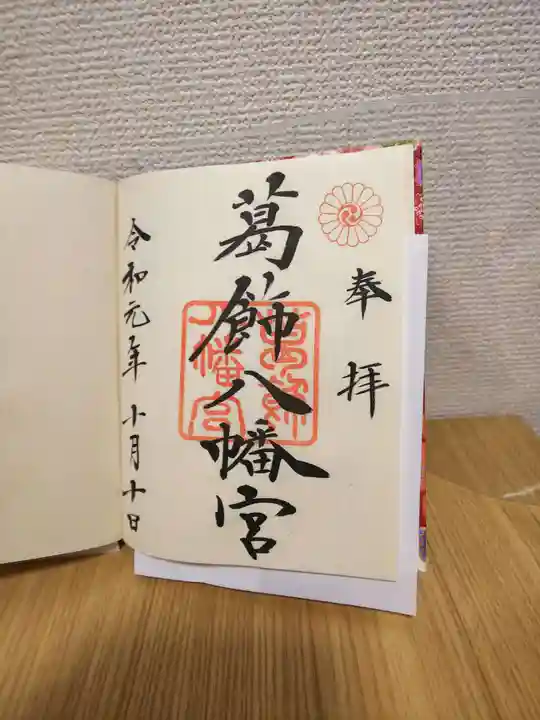 奉拝
葛飾八幡宮
葛飾
八幡宮
令和元年十月十日